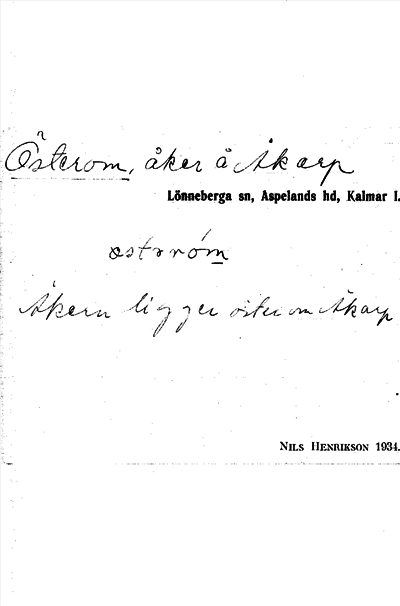 Österom, åker å Åkarp
Lönneberga sn, Aspelands hd, Kalmar l.
østǝróm
Åkern ligger öster om Åkarp
NILS HENRIKSON 1934.